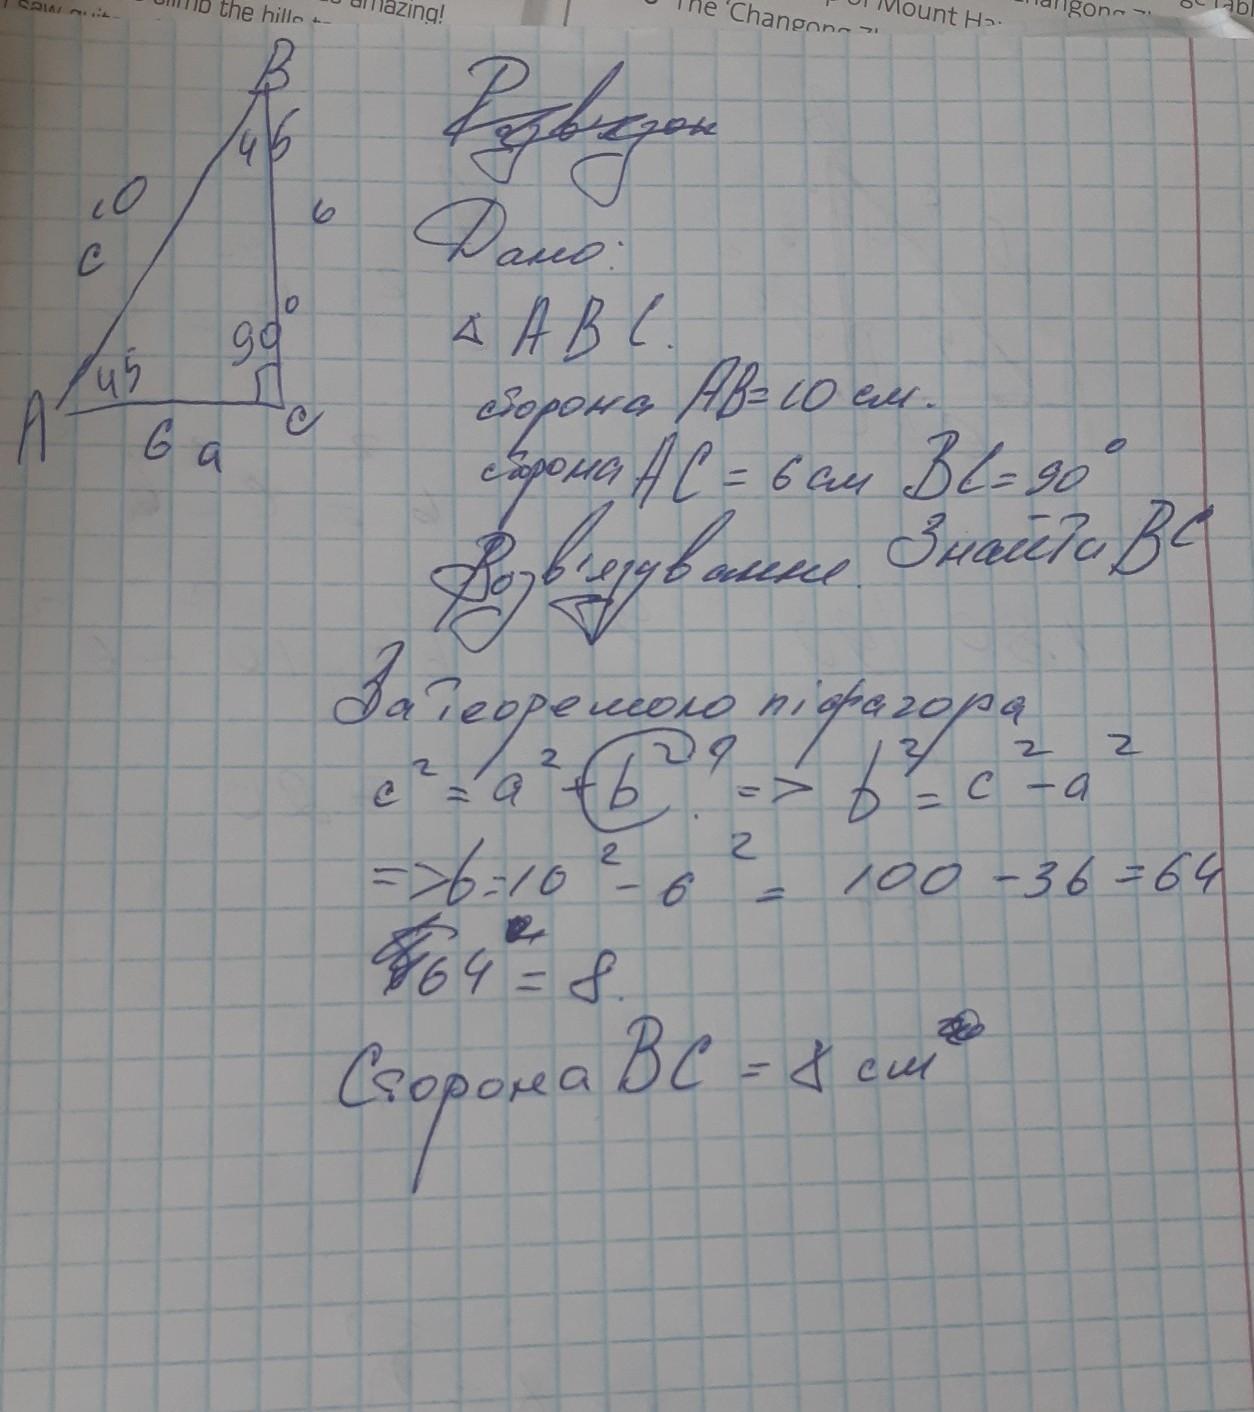 amazing!
climb the hills to
The 'Changong
of Mount Ha
B
45
10
c
6
90°
45
A
C
6 a
Розв'язон
Дано:
△ ABC.
сторона AB=10 см.
сторона AC = 6 см BC=90°
Розв'язування. Знайти BC
За теоремою піфагора
c² = a² + b² ? => b² = c² - a²
=> b = 10² - 6² = 100 - 36 = 64
√64 = 8.
Сторона BC = 8 см